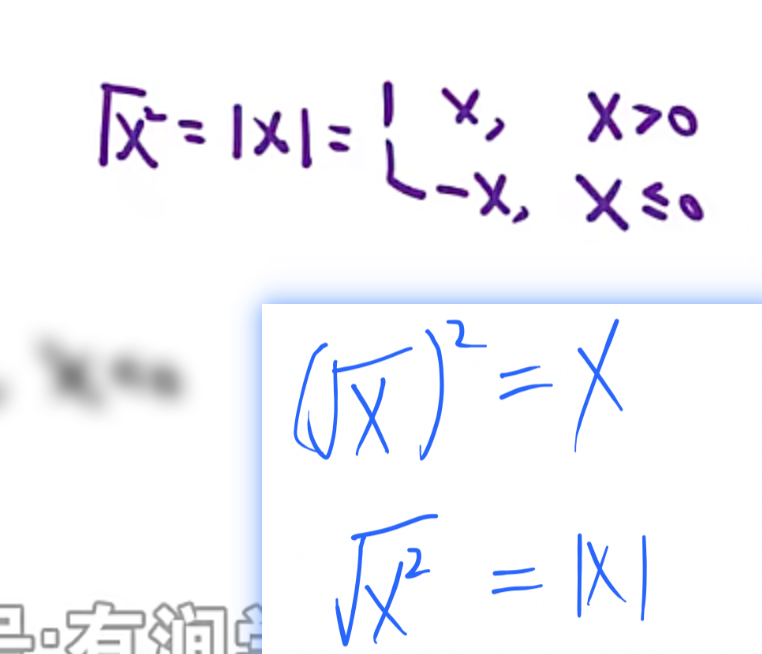 √x² = |x| = { x, x>0
-x, x≤0
(√x)² = x
√x² = |x|
号·有润